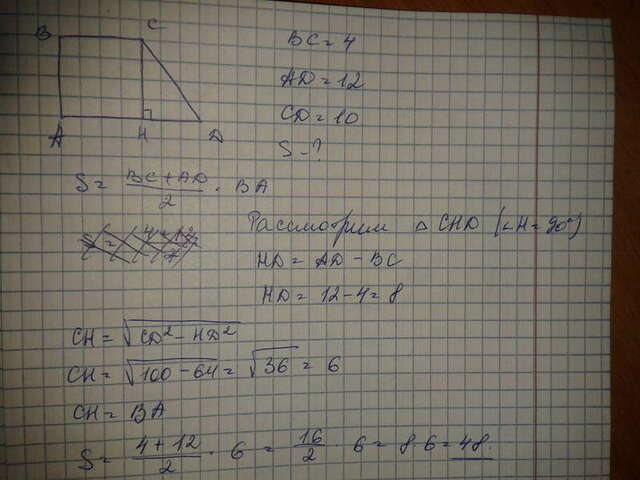 B C
A H D
BC = 4
AD = 12
CD = 10
S - ?
S = \frac{BC + AD}{2} · BA
Рассмотрим △ CHD (∠H = 90°)
HD = AD - BC
HD = 12 - 4 = 8
CH = √(CD² - HD²)
CH = √(100 - 64) = √36 = 6
CH = BA
S = \frac{4 + 12}{2} · 6 = \frac{16}{2} · 6 = 8 · 6 = 48.